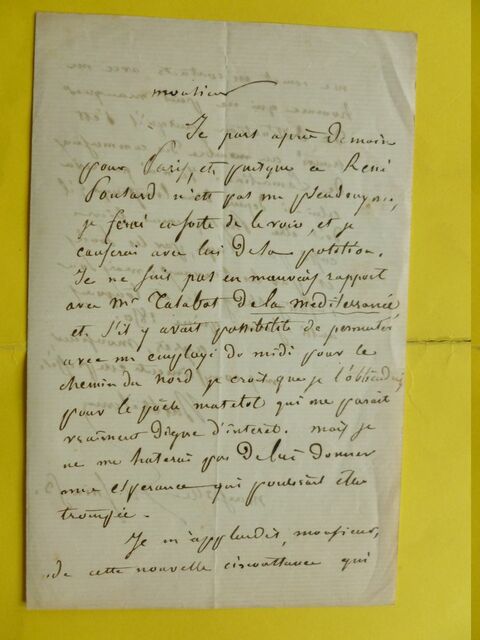 monsieur
Je pars après Demain
pour Paris, et puisque ce René
Ponsard n'est pas un pseudonyme,
je ferai ensorte de le voir, et je
causerai avec lui de sa position.
Je ne suis pas en mauvais rapport
avec Mr Talabot de la mediterranée
et s'il y avait possibilité de permuter
avec un employé du midi pour le
chemin du nord je crois que je l'obtiendrai
pour le poëte matelot qui me parait
vraiment digne d'interet. mais je
ne me haterai pas de lui donner
une esperance qui pourrait être
trompée.
Je m'applaudis, monsieur,
de cette nouvelle circonstance qui